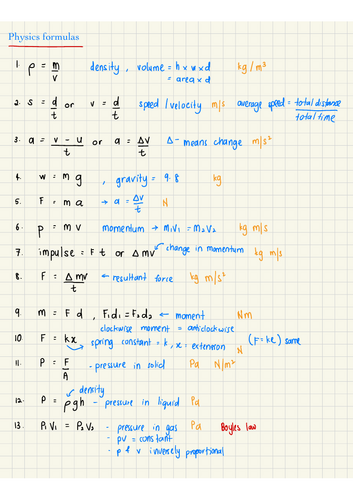 Physics formulas
1. ρ = m/v density, volume = h × w × d kg/m³
= area × d
2. s = d/t or v = d/t speed/velocity m/s average speed = total distance/total time
3. a = v - u/t or a = Δv/t Δ - means change m/s²
4. w = m g, gravity = 9.8 kg
5. F = m a → a = Δv/t N
6. p = m v momentum → m₁V₁ = m₂V₂ kg m/s
7. impulse = F t or Δ mv ← change in momentum kg m/s
8. F = Δ mv/t ← resultant force kg m/s²
9. m = F d, F₁d₁ = F₂d₂ ← moment Nm
clockwise moment = anticlockwise
10 F = kx spring constant = k, x = extension N (F = ke) same
11. P = F/A - pressure in solid Pa N/m²
density
12. P = ρgh - pressure in liquid Pa
13. P₁V₁ = P₂V₂ - pressure in gas Pa Boyles law
- pv = constant
- p & v inversely proportional